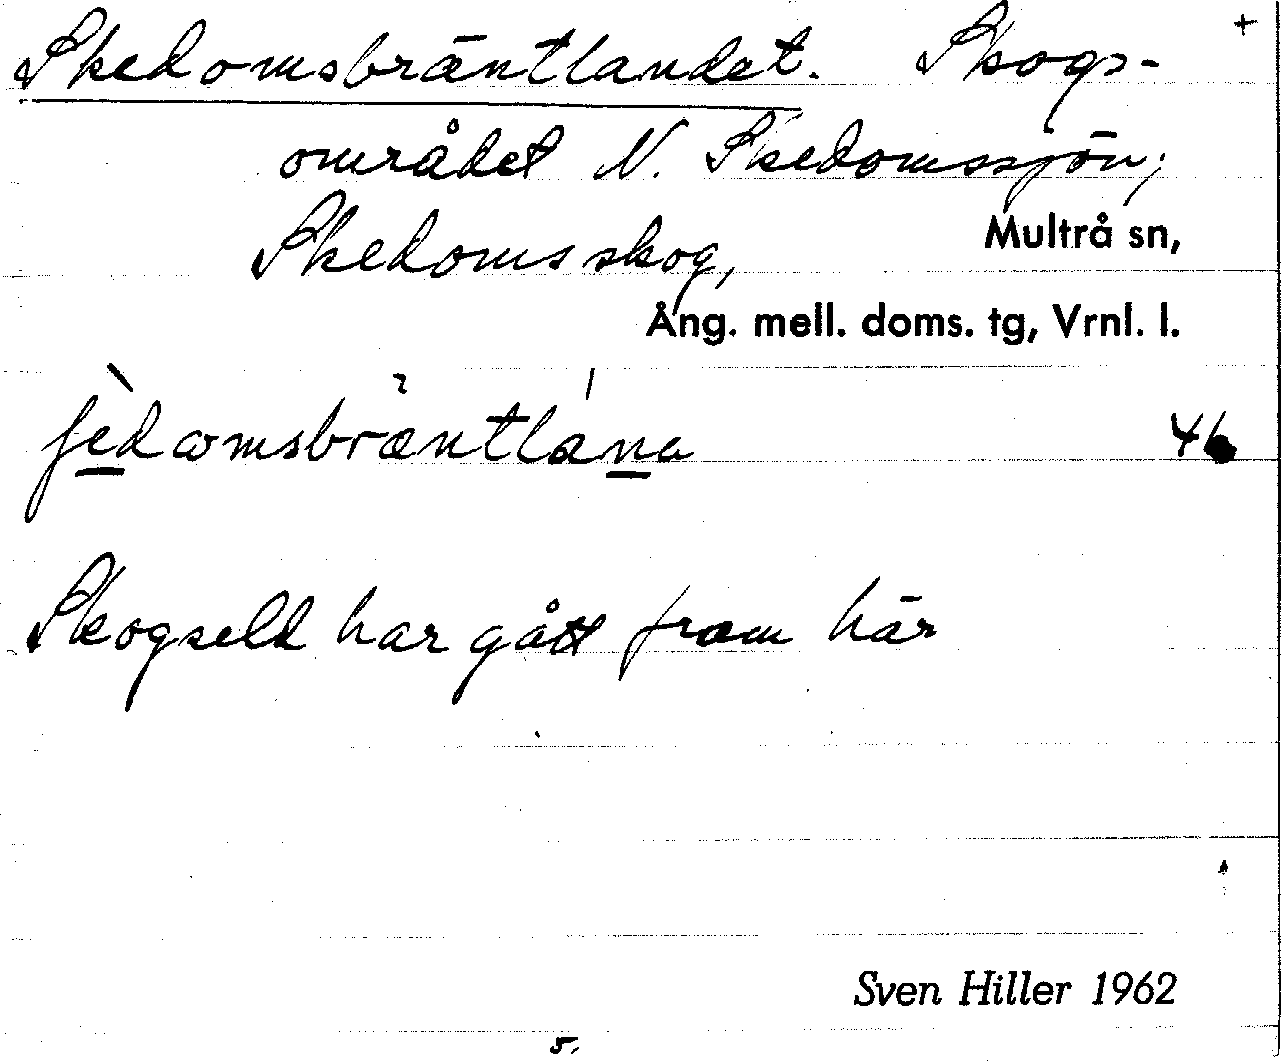 Skedomsbräntlandet. Skogs- +
området N. Skedomssjön;
Skedomsskog, Multrå sn,
Ång. mell. doms. tg, Vrnl. l.
Skogseld har gått fram här
Sven Hiller 1962
5.